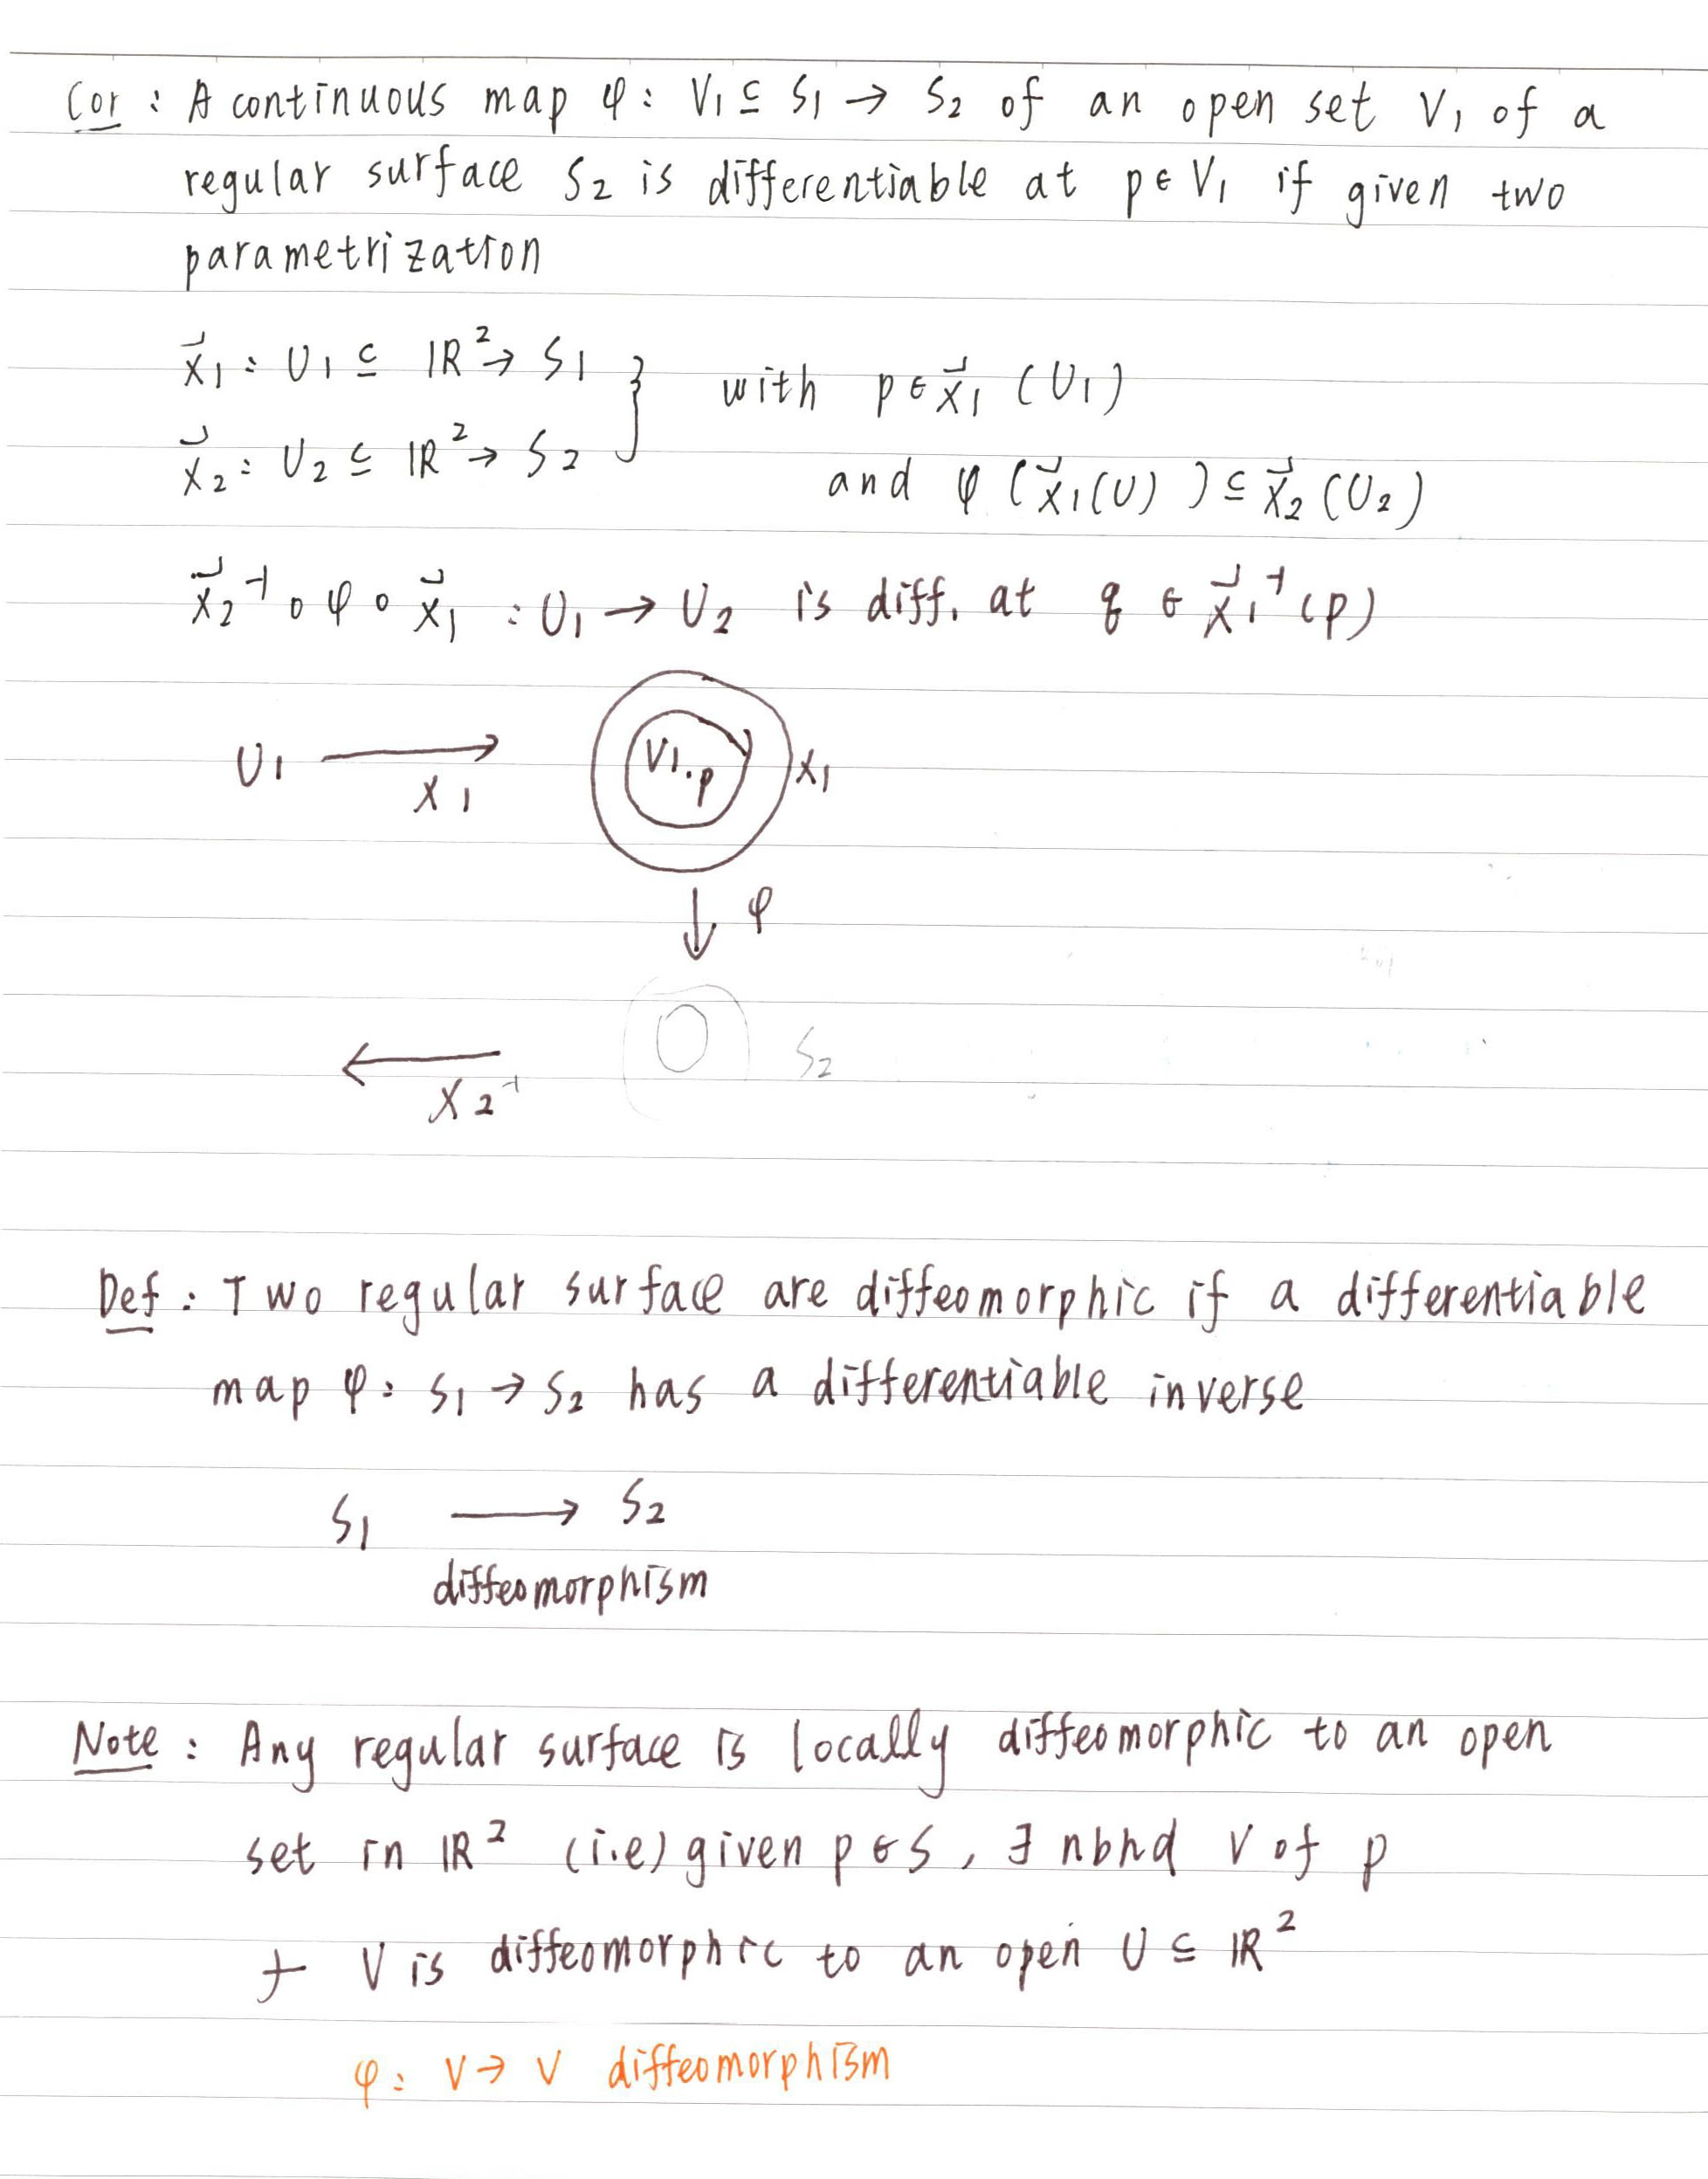 Cor : A continuous map φ : V₁ ⊆ S₁ → S₂ of an open set V₁ of a
regular surface S₂ is differentiable at p ∈ V₁ if given two
parametrization
x⃗₁ : U₁ ⊆ ℝ² → S₁ } with p ∈ x⃗₁ (U₁)
x⃗₂ : U₂ ⊆ ℝ² → S₂
and φ (x⃗₁(U) ) ⊆ x⃗₂ (U₂)
x⃗₂⁻¹ ∘ φ ∘ x⃗₁ : U₁ → U₂ is diff. at q ∈ x⃗₁⁻¹ (p)
U₁ → V₁ . p x₁
x₁
↓ φ
S₂
← x₂⁻¹
Def : Two regular surface are diffeomorphic if a differentiable
map φ : S₁ → S₂ has a differentiable inverse
S₁ → S₂
diffeomorphism
Note : Any regular surface is locally diffeomorphic to an open
set in ℝ² (i.e) given p ∈ S , ∃ nbhd V of p
+ V is diffeomorphic to an open U ⊆ ℝ²
φ : V → V diffeomorphism